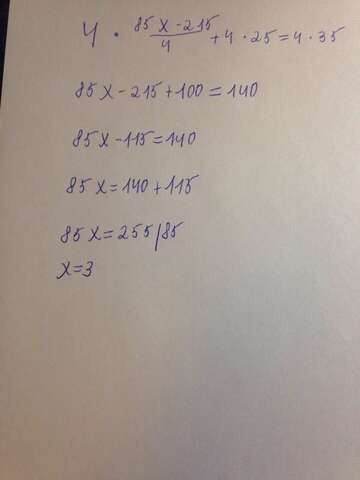 4 · 85x - 215 / 4 + 4 · 25 = 4 · 35
85x - 215 + 100 = 140
85x - 115 = 140
85x = 140 + 115
85x = 255 / 85
x = 3